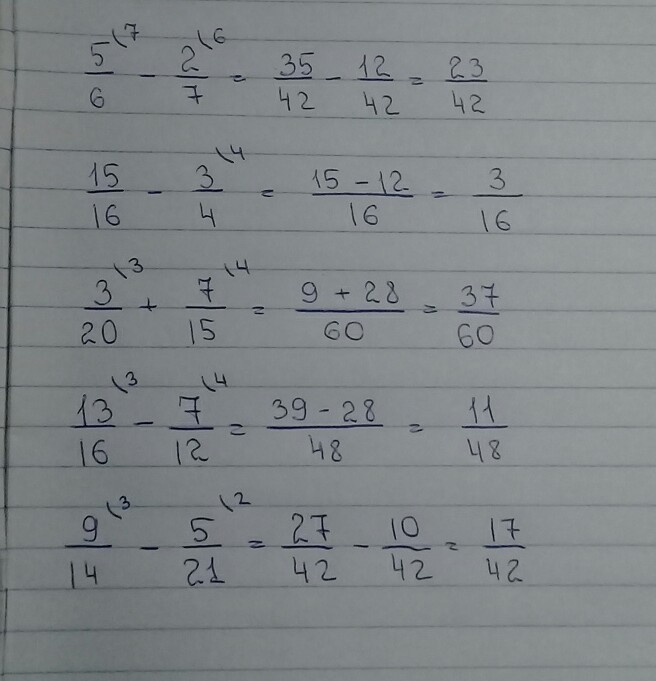 5/6 \7 - 2/7 \6 = 35/42 - 12/42 = 23/42
15/16 - 3/4 \4 = 15 - 12/16 = 3/16
3/20 \3 + 7/15 \4 = 9 + 28/60 = 37/60
13/16 \3 - 7/12 \4 = 39 - 28/48 = 11/48
9/14 \3 - 5/21 \2 = 27/42 - 10/42 = 17/42